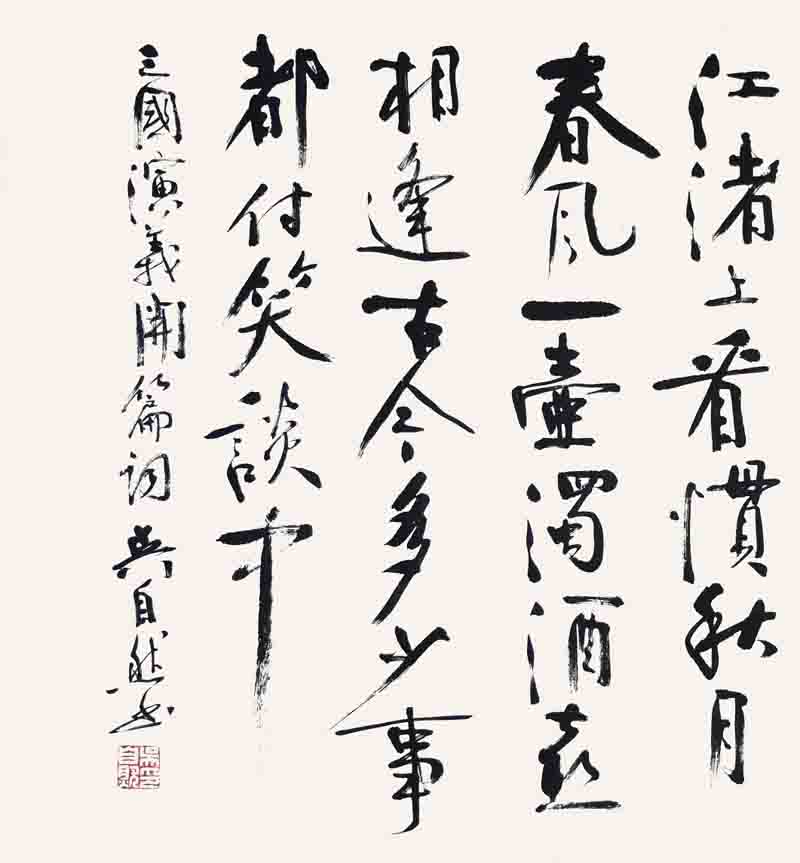 江渚上看慣秋月
春风一壺濁酒喜
相逢古今多少事
都付笑談中
三國演義開篇词 吳自然书